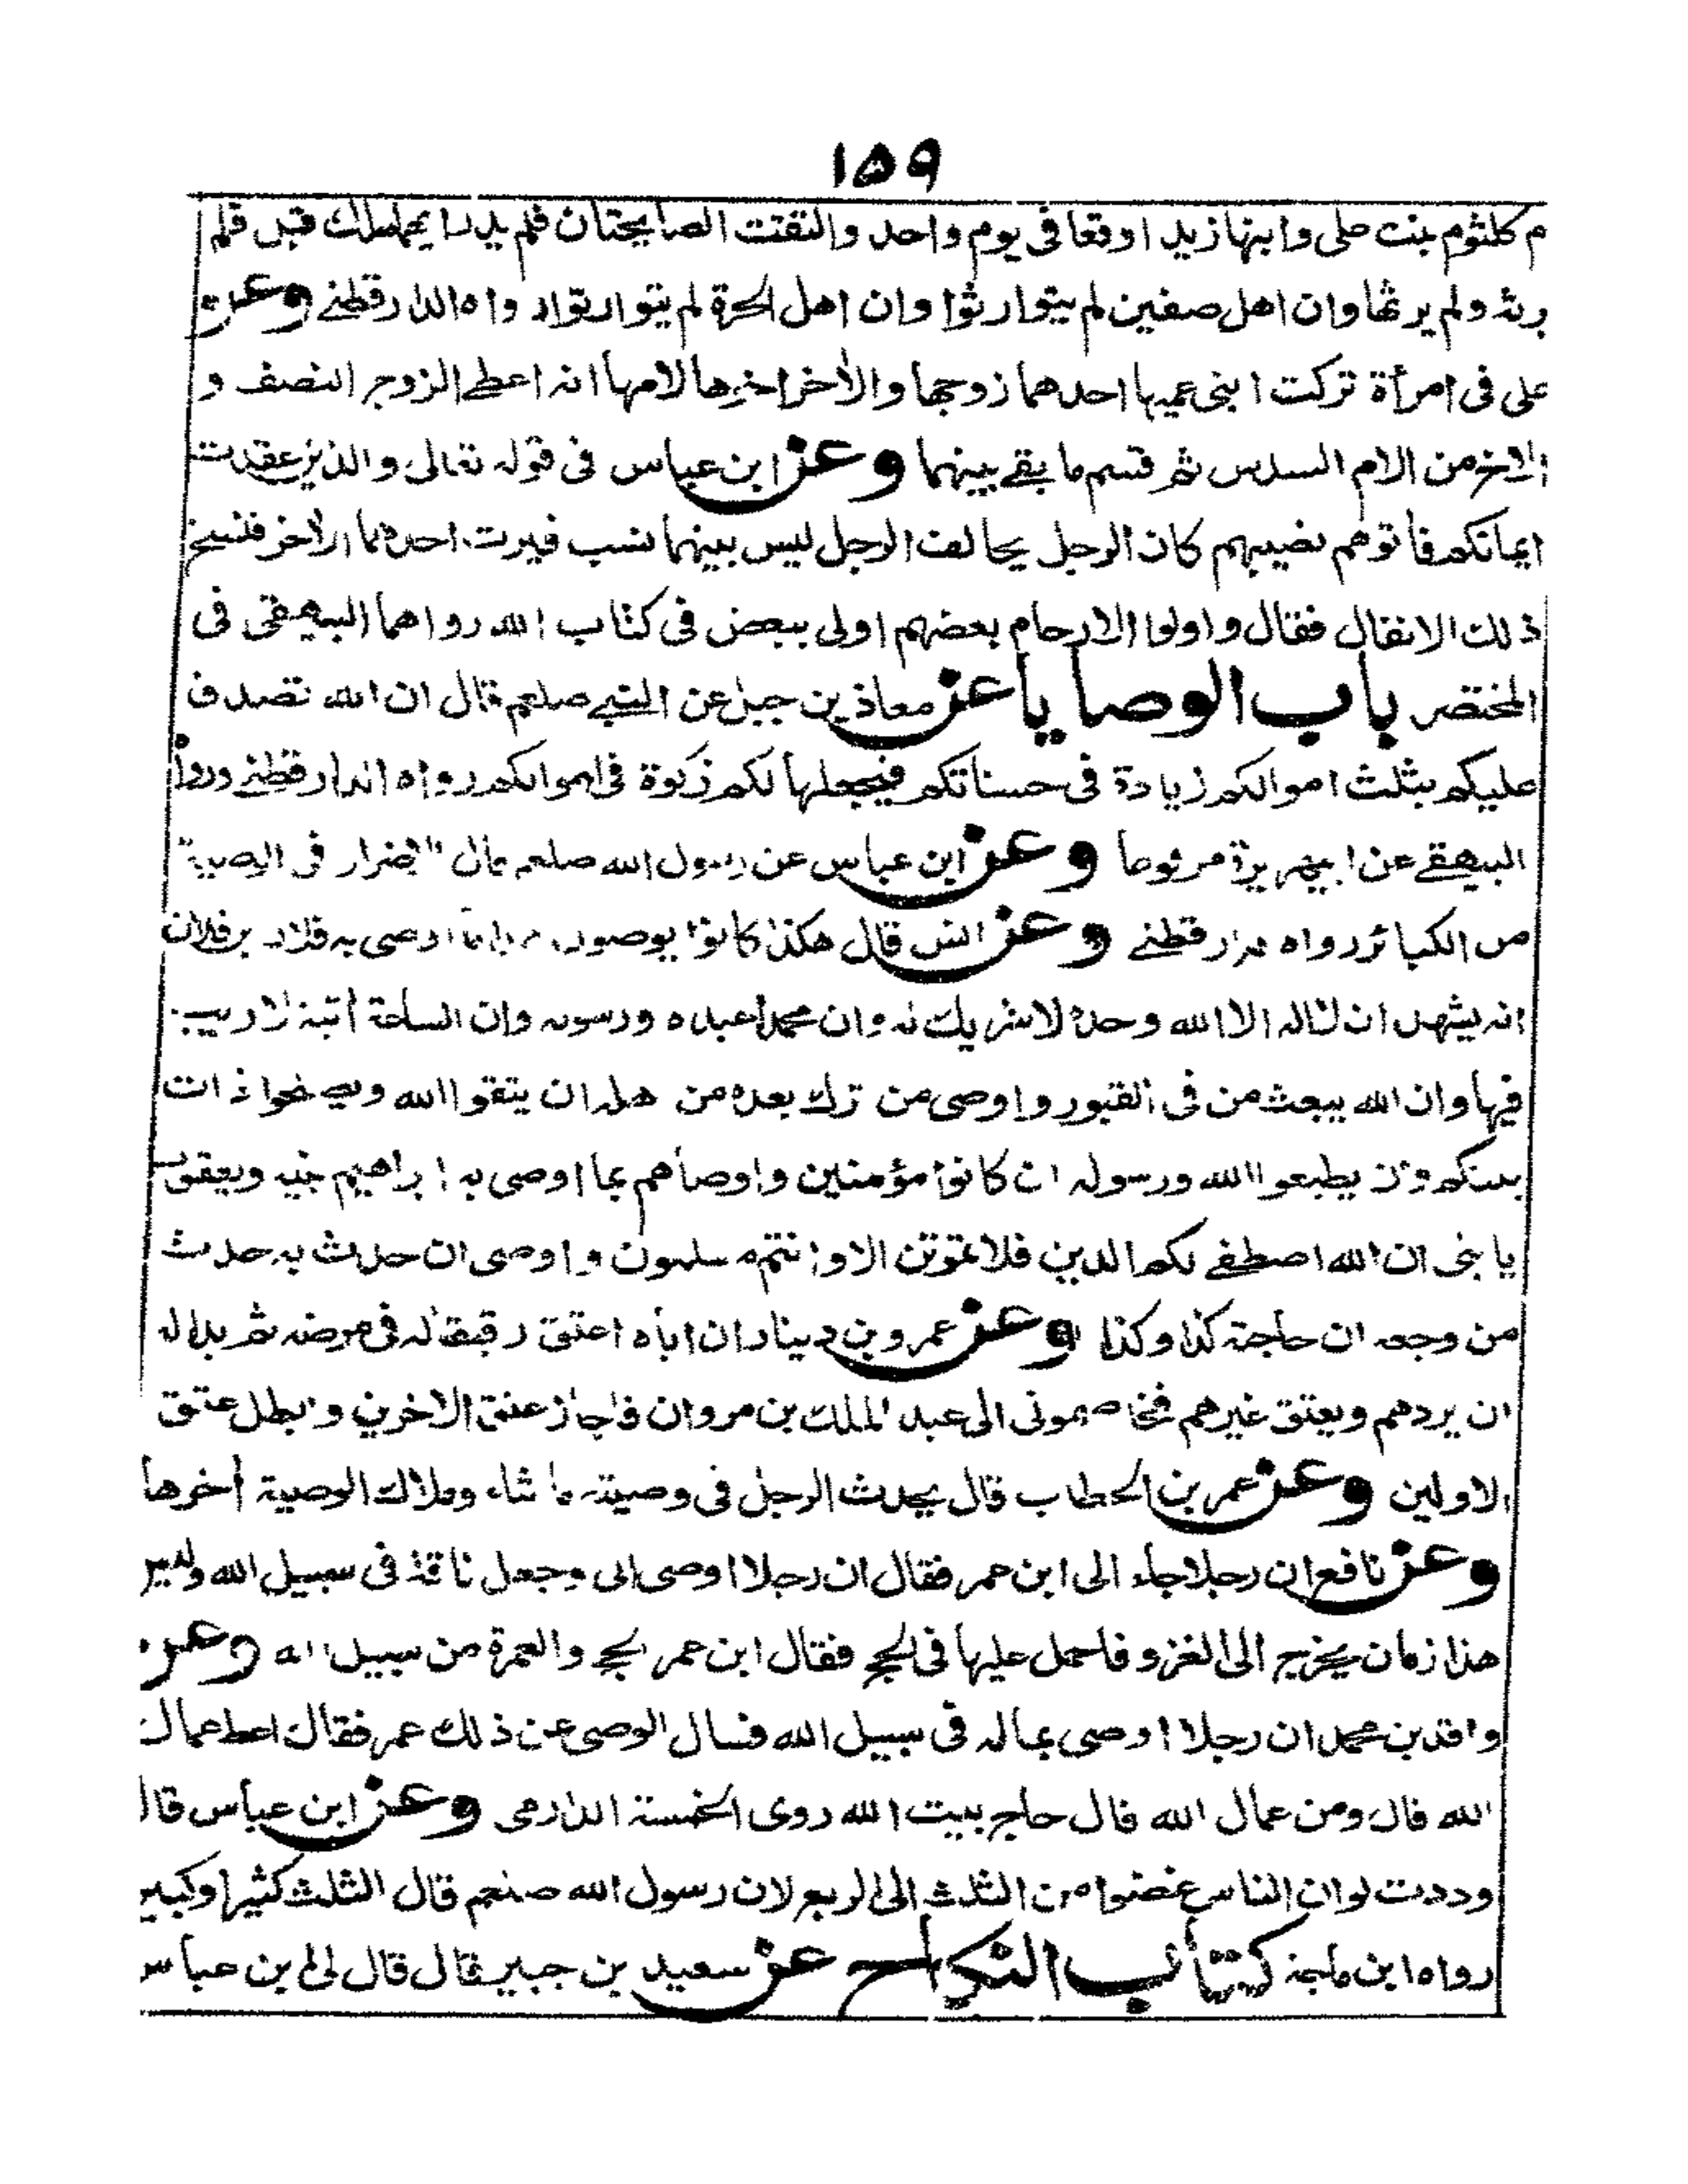 ١٥٩
م كلثوم بنت على وابنها زيد اوقعا فى يوم واحد والتقت الصايحتان فلم يدر ايهما هلك قبل فلم
يرثه ولم يرثها وان اهل صفين لم يتوارثوا وان اهل الحرة لم يتوارثوا رواه الدارقطنے وعن
على فى امرأة تركت ابنى عميها احدهما زوجها والأخر اخيها لامها انه اعطے الزوج النصف و
الاخ من الام السدس ثم قسم ما بقے بينهما وعن ابن عباس فى قوله تعالى والذين عقدت
ايمانكم فأتوهم نصيبهم كان الرجل يحالف الرجل ليس بينهما نسب فيرث احدهما الأخر فنسخ
ذلك الانفال فقال واولوا الارحام بعضهم اولى ببعض فى كتاب الله رواهما البيهقى فى
المختصر باب الوصايا عن معاذ بن جبل عن النبے صلعم قال ان الله تصدق
عليكم بثلث اموالكم زيادة فى حسناتكم فيجعلها لكم زكوة فى اموالكم رواه الدارقطنے ورواه
البيهقے عن ابيهريرة مرفوعا وعن ابن عباس عن رسول الله صلعم قال الاضرار فى الوصية
من الكبائر رواه الدارقطنے وعن انس قال هكذا كانوا يوصون هذا ما اوصى به فلان بن فلان
انه يشهد ان لااله الا الله وحده لاشريك له وان محمدا عبده ورسوله وان الساعة أتية لاريب
فيها وان الله يبعث من فى القبور واوصى من ترك بعده من اهله ان يتقوا الله ويصلحوا ذات
بينكم وان يطيعوا الله ورسوله ان كانوا مؤمنين واوصاهم بما اوصى به ابراهيم بنيه ويعقوب
يا بنى ان الله اصطفے لكم الدين فلا تموتن الا وانتم مسلمون واوصى ان حدث به حدث
من وجعه ان حاجته كذا وكذا وعن عمرو بن دينار ان اباه اعتق رقيقا له فى مرضه ثم بدا له
ان يردهم ويعتق غيرهم فخاصمونى الى عبد الملك بن مروان فاجاز عتق الاخرين وابطل عتق
الاولين وعن عمر بن الخطاب قال يحدث الرجل فى وصيته ما شاء وملاك الوصية أخرها
وعن نافع ان رجلا جاء الى ابن عمر فقال ان رجلا اوصى الى وجعل ناقة فى سبيل الله وليس
هذا زمان يخرج الى الغزو فاحمل عليها فى الحج فقال ابن عمر الحج والعمرة من سبيل الله وعن
واقد بن محمد ان رجلا اوصى بماله فى سبيل الله فسال الوصى عن ذلك عمر فقال اعط عمال
الله قال ومن عمال الله قال حاج بيت الله روى الخمسة الدارمى وعن ابن عباس قال
وددت لو ان الناس غضوا من الثلث الى الربع لان رسول الله صلعم قال الثلث كثير او كبير
رواه ابن ماجة كتاب النكاح عن سعيد بن جبير قال قال لى ابن عباس